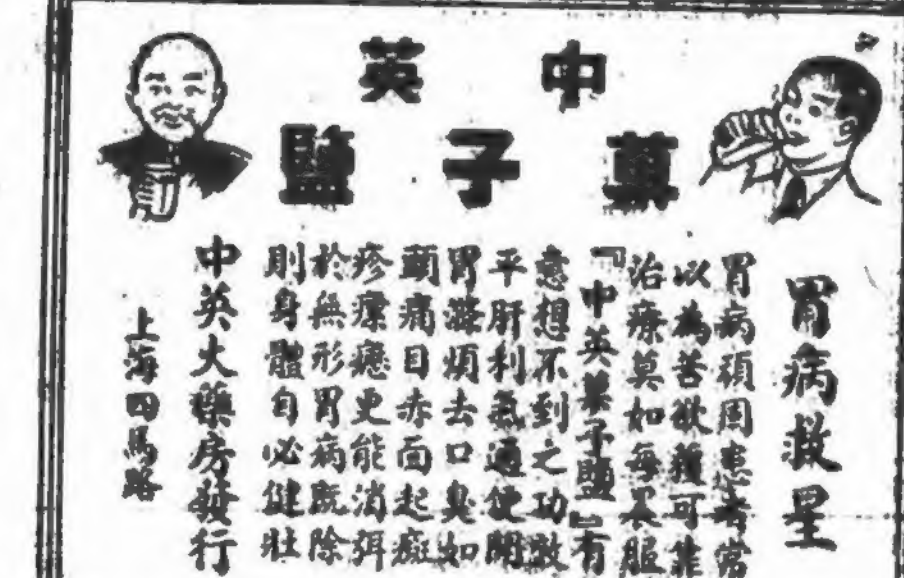 中英
菓子鹽
胃病救星
胃病頑固患者常
以為苦欲穫可靠
治療莫如每晨服
『中英菓子鹽』有
意想不到之功效
平肝利氣通便開
胃滌煩去口臭如
頭痛目赤面起痱
疹瘰癧更能消弭
於無形胃病既除
則身體自必健壯
中英大藥房發行
上海四馬路